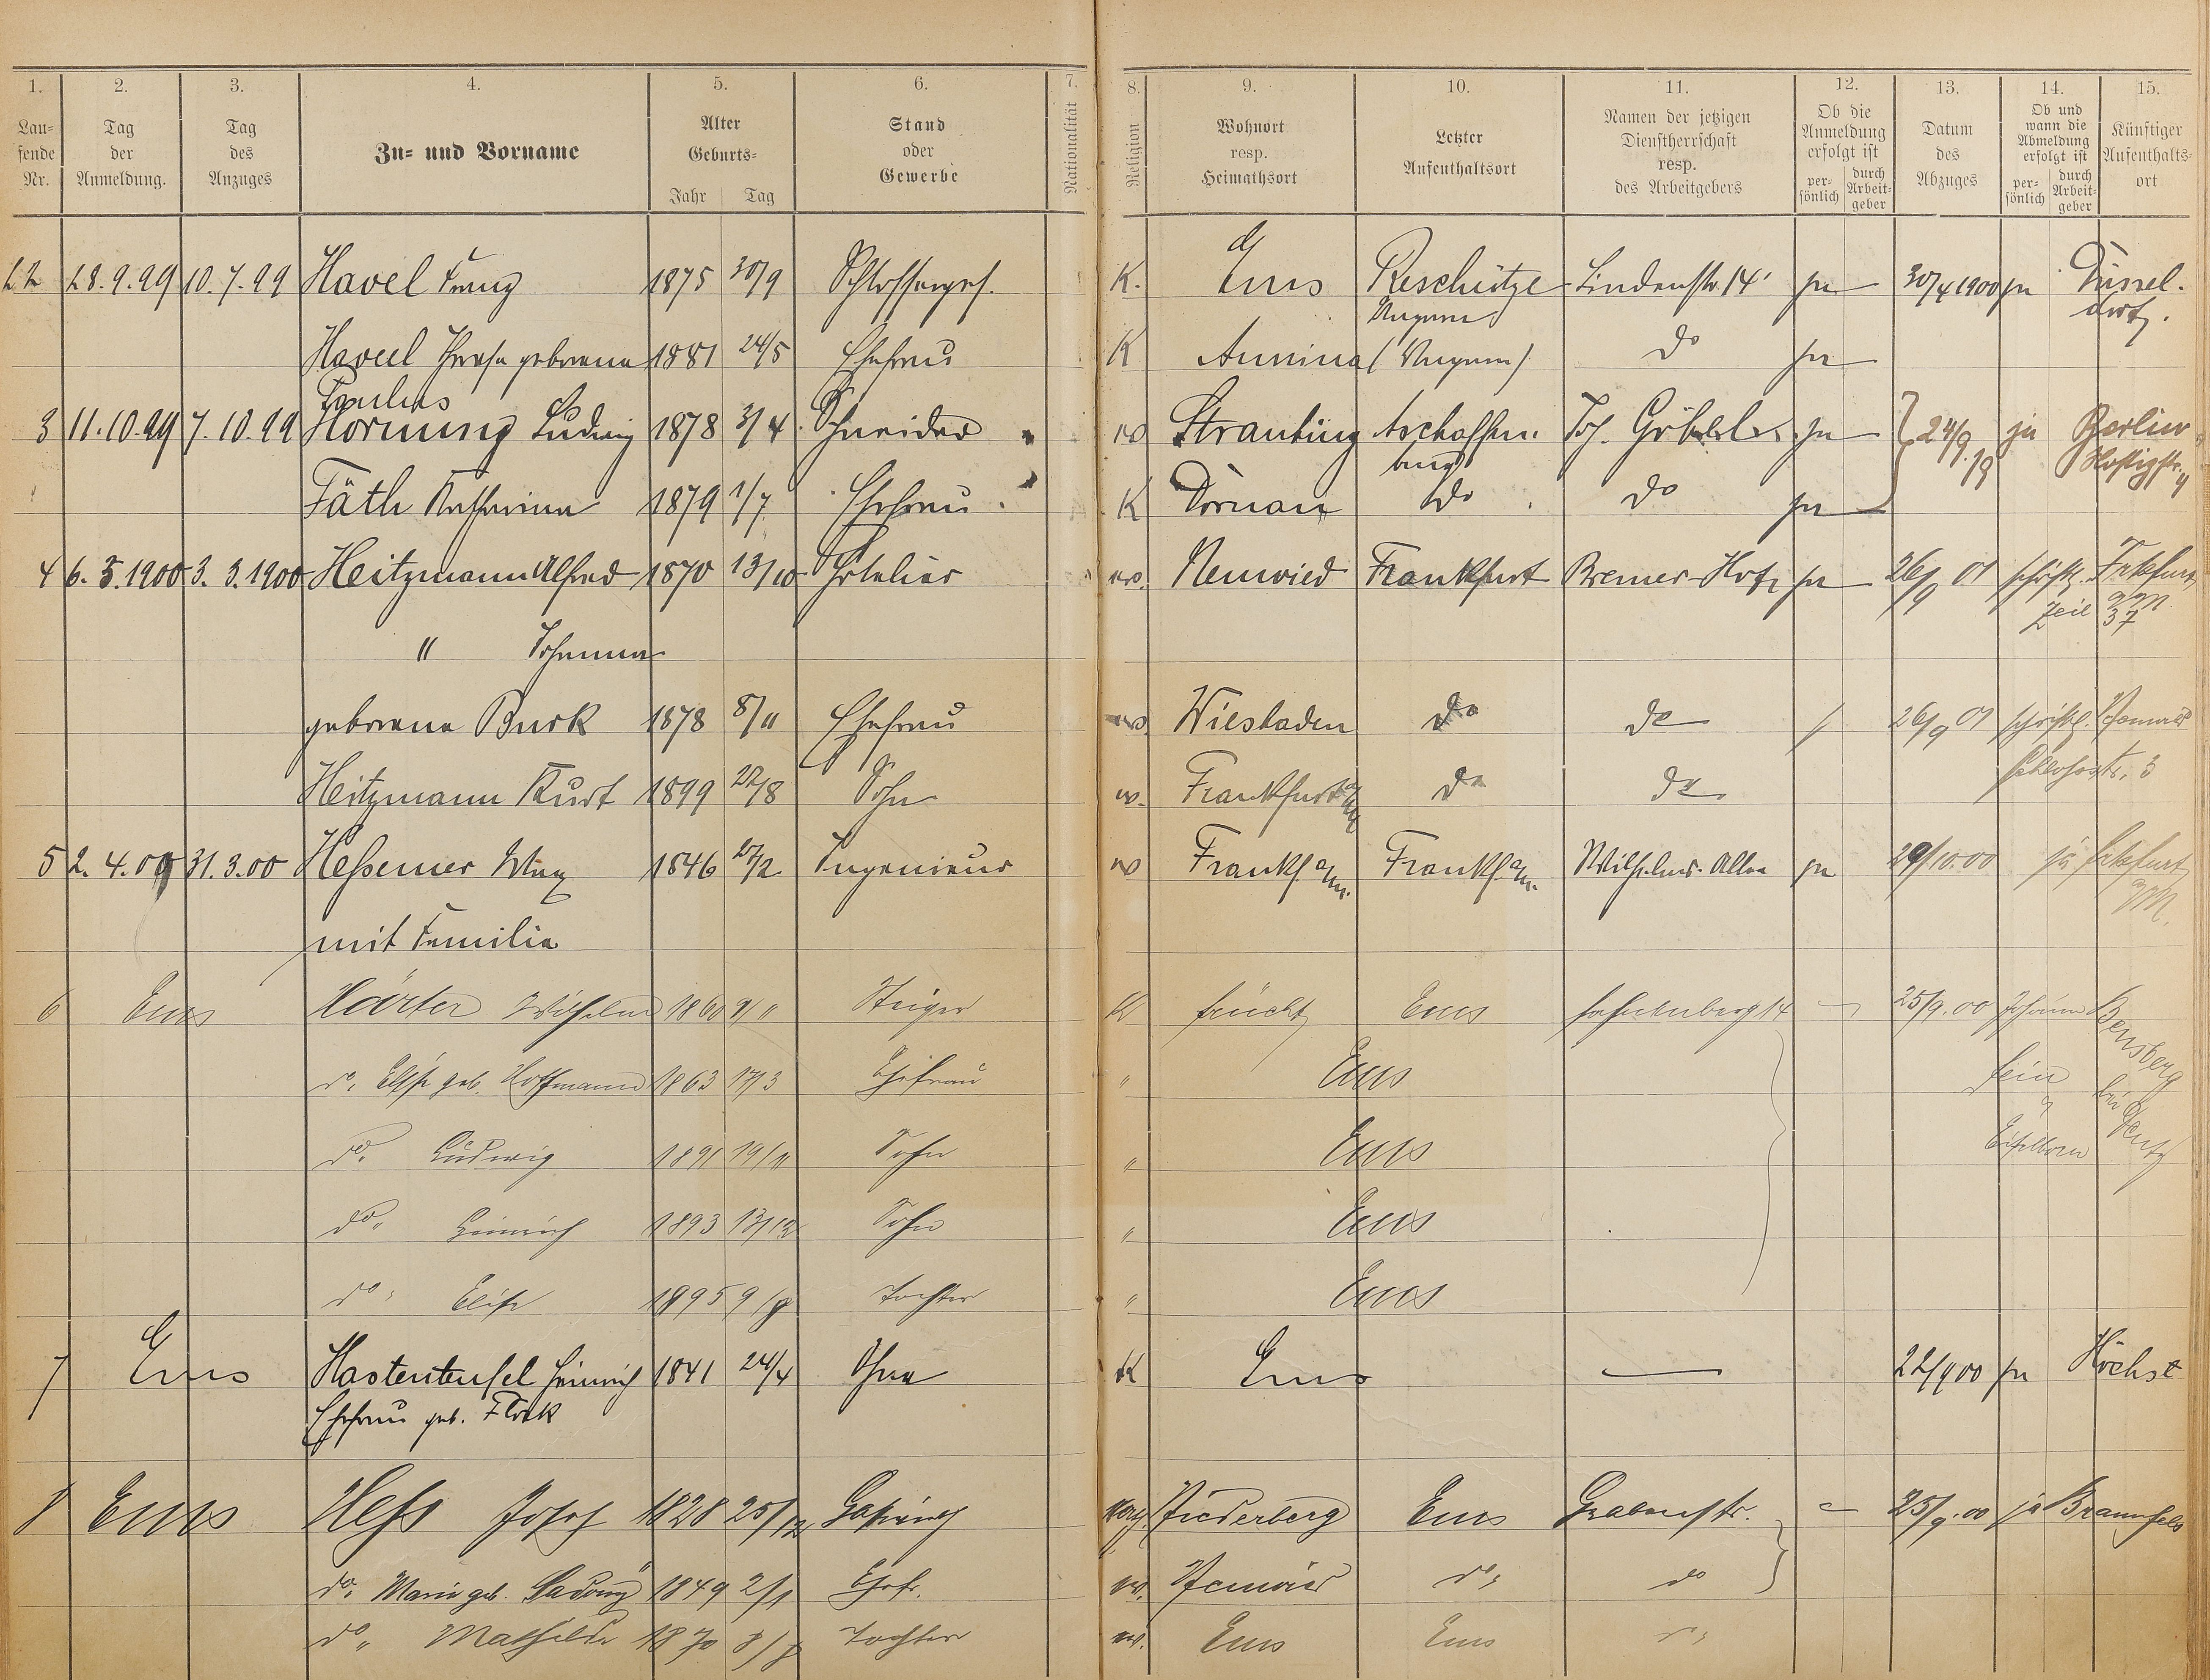 1. 2. 3. 4. 5. 6. 7. 8. 9. 10. 11. 12. 13. 14. 15.
Laufende Nr. Tag der Anmeldung. Tag des Anzuges Zu- und Vorname Alter Geburts- Jahr Tag Stand oder Gewerbe Nationalität Religion Wohnort resp. Heimathsort Letzter Aufenthaltsort Namen der jetzigen Dienstherrschaft resp. des Arbeitgebers Ob die Anmeldung erfolgt ist persönlich durch Arbeitgeber Datum des Abzuges Ob und wann die Abmeldung erfolgt ist persönlich durch Arbeitgeber Künftiger Aufenthaltsort
28.9.99 10.7.99 Havel Franz 1875 30/9 Schlosserges. K. Ems Reschitze Lindenstr. 14 ja 30/4 1900 ja Düssel-
Ungarn dorf.
Havel geborene 1881 24/5 Ehefrau K Annina (Ungarn) do ja
3 11.10.99 7.10.99 Hornung Ludwig 1878 3/4 Schneider ev Straubing Aschaffen- Jos. ja 24/9 ja Berlin
burg
Fäth Katharina 1879 1/7 Ehefrau K Dornau do do ja
4 6.3.1900 3.3.1900 Heitzmann Alfred 1870 13/10 Hotelier ev. Neuwied Frankfurt Bremer-Hof ja 26/9 01 schriftl. Frkfurt
Zeil 37
" Johanna
geborene Burk 1878 8/11 Ehefrau ev. Wiesbaden do do 26/9 01 schriftl. Neuwied
Schlossstr. 3
Heitzmann Kurt 1899 22/8 Sohn ev. Frankfurt a/M do do
5 2.4.00 31.3.00 Heßemer Max 1846 Ingenieur ev Frankf. a/M. Frankf. a/M. Wilhelms-Allee ja 29/10.00 ja Frkfurt
a/M.
mit Familie
6 Ems Härter Wilhelm 1860 Steiger K Frücht Ems 14 25/9.00 Bensberg
do. Elise geb. Hoffmann 1863 17/3 Ehefrau " Ems bei
do. Ludwig 1891 19/11 Sohn " Ems Deutz
do. Heinrich 1893 13/12 Sohn " Ems
do. Elise 1895 9/8 Tochter " Ems
7 Ems Hastenteufel Heinrich 1841 24/4 Ohne K Ems — 22/9 00 ja Höchst
Ehefrau geb. Flöck
8 Ems Heß Josef 1828 25/12 Niederberg Ems Grabenstr. 25/9.00 ja Braunfels
do. Marie geb. 1849 2/1 Ehefr. ev. Neuwied do. do
do. Mathilde 1870 8/8 Tochter ev. Ems Ems do.